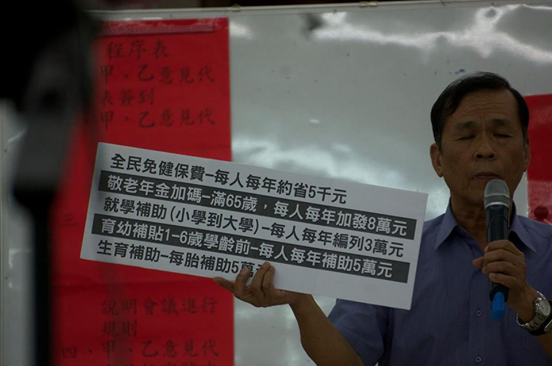 程序表
甲、乙意見代
表簽到
甲、乙意見代
全民免健保費-每人每年約省5千元
敬老年金加碼-滿65歲，每人每年加發8萬元
就學補助(小學到大學)-每人每年編列3萬元
育幼補貼1-6歲學齡前-每人每年補助5萬元
生育補助-每胎補助5萬元
說明會議進行
規則
四、甲、乙意見代